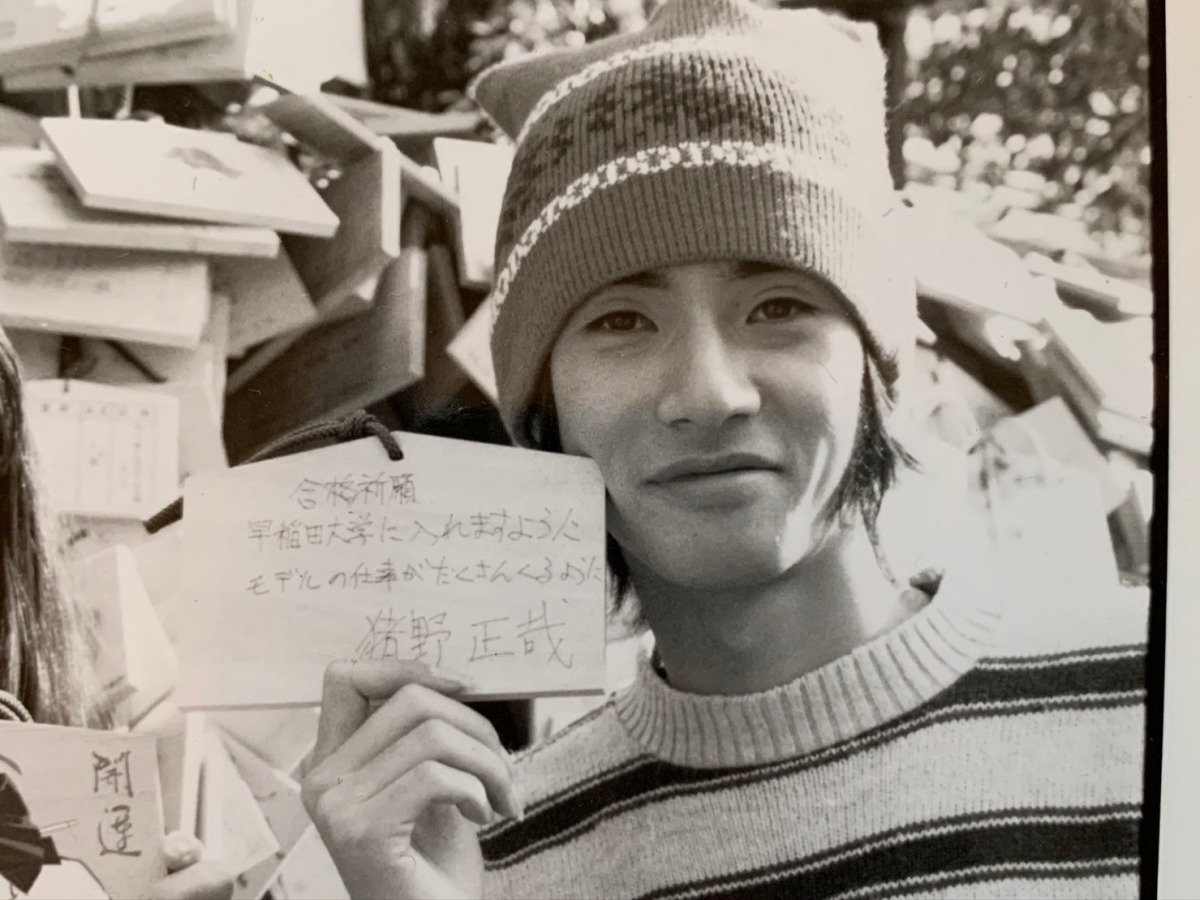 合格祈願
早稲田大学に入れますように
モデルの仕事がたくさんくるように
猪野 正哉
開運